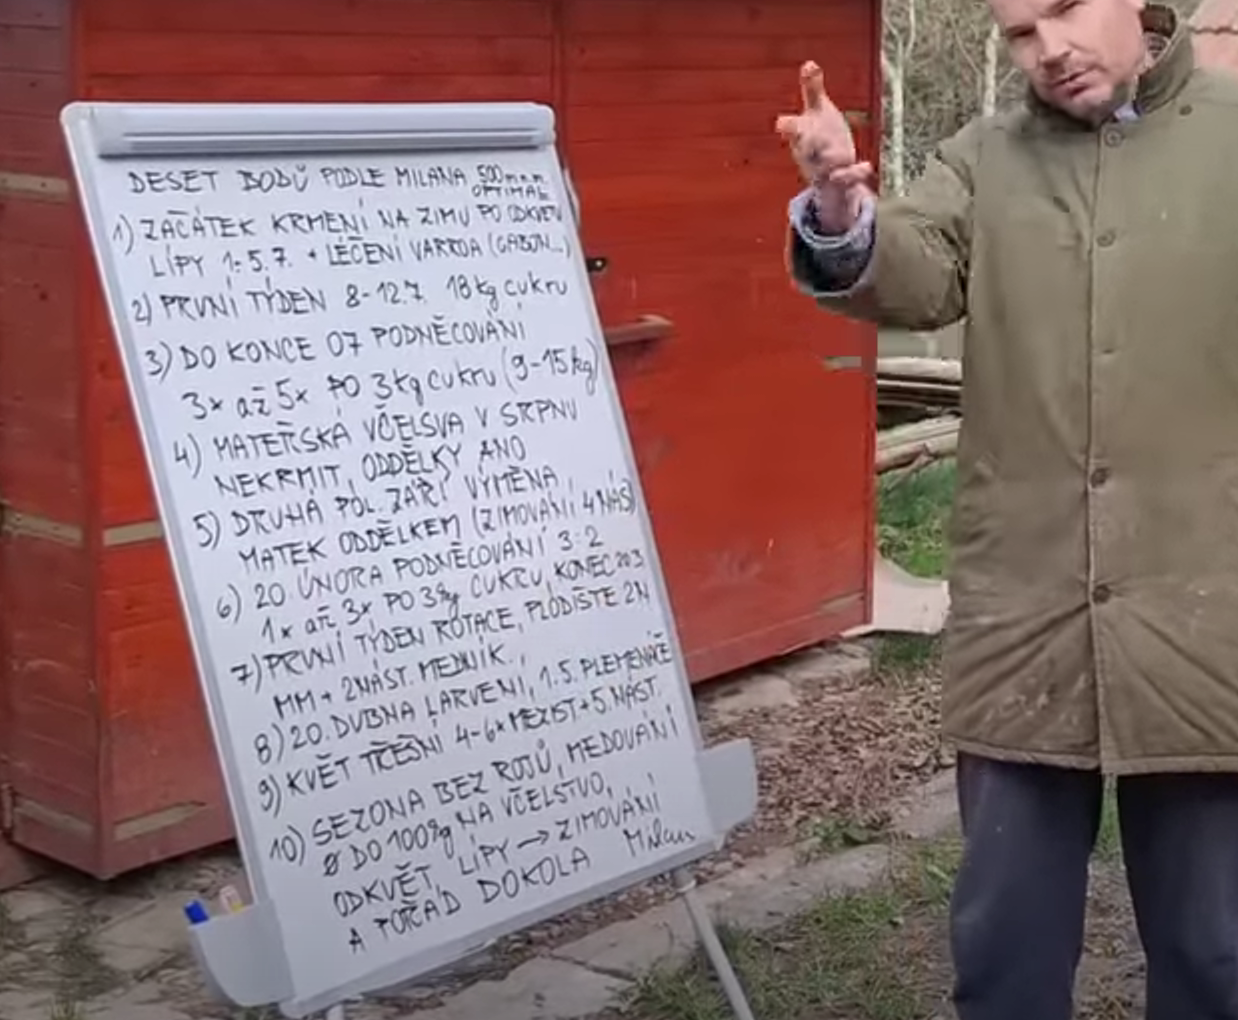 DESET BODŮ PODLE MILANA 500mm OPTIMAL
1) ZAČÁTEK KRMENÍ NA ZIMU PO ODKVĚTU
LÍPY 1.-5.7. + LÉČENÍ VARROA (GABON...)
2) PRVNÍ TÝDEN 8-12.7. 18kg cukru
3) DO KONCE 07 PODNĚCOVÁNÍ
3x až 5x PO 3kg cukru (9-15kg)
4) MATEŘSKÁ VČELSVA V SRPNU
NEKRMIT, ODDĚLKY ANO
5) DRUHÁ POL. ZÁŘÍ VÝMĚNA
MATEK ODDĚLKEM (ZIMOVÁNÍ 4 NÁS)
6) 20. ÚNORA PODNĚCOVÁNÍ 3:2
1x až 3x PO 3kg CUKRU, KONEC 20.3
7) PRVNÍ TÝDEN ROTACE, PLODIŠTE 2N
MM + 2NÁST. MEDNÍK.
8) 20. DUBNA LARVENÍ, 1.5. PLEMENÁČE
9) KVĚT TŘEŠNÍ 4-6x MEZIST + 5. NÁST.
10) SEZONA BEZ ROJŮ, MEDOVÁNÍ
Ø DO 100kg NA VČELSTVO,
ODKVĚT LÍPY → ZIMOVÁNÍ
A POŘÁD DOKOLA Milan